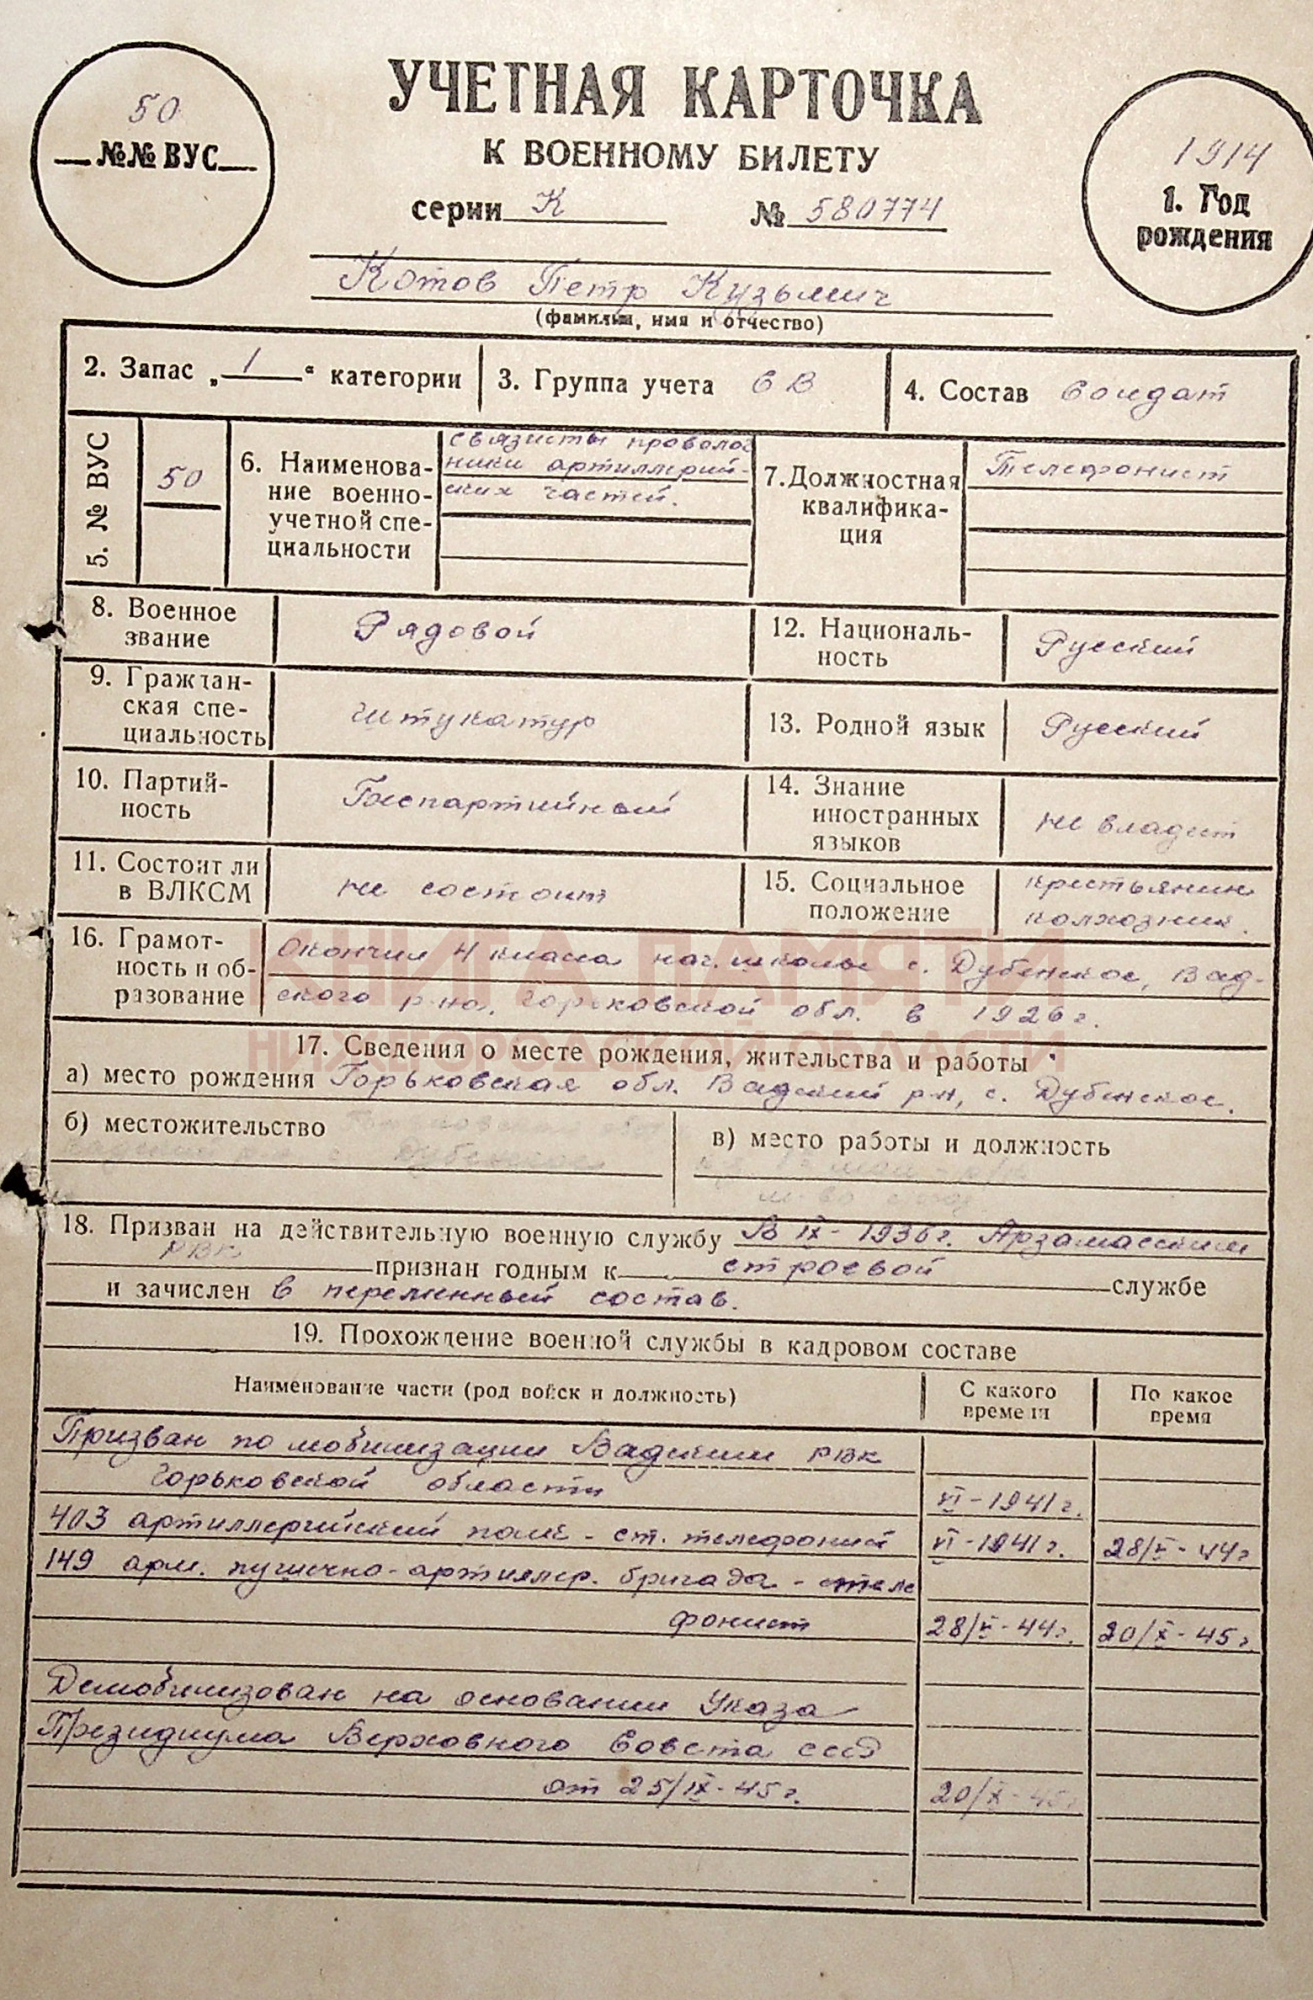 50
№№ ВУС
УЧЕТНАЯ КАРТОЧКА
К ВОЕННОМУ БИЛЕТУ
серии К № 580774
1914
1. Год
рождения
Котов Петр Кузьмич
(фамилия, имя и отчество)
2. Запас „1“ категории
3. Группа учета СВ
4. Состав солдат
5. № ВУС
50
6. Наименова-
ние военно-
учетной спе-
циальности
связисты проволоч
ники артиллерий-
ских частей.
7. Должностная
квалифика-
ция
Телефонист
8. Военное
звание
Рядовой
12. Националь-
ность
Русский
9. Граждан-
ская спе-
циальность
штукатур
13. Родной язык
Русский
10. Партий-
ность
Беспартийный
14. Знание
иностранных
языков
не владеет
11. Состоит ли
в ВЛКСМ
не состоит
15. Социальное
положение
крестьянин
колхозник.
16. Грамот-
ность и об-
разование
Окончил 4 класса нач. школы с. Дубенское, Вад-
ского р-на, Горьковской обл. в 1926 г.
КНИГА ПАМЯТИ
НИЖЕГОРОДСКОЙ ОБЛАСТИ
17. Сведения о месте рождения, жительства и работы
а) место рождения Горьковская обл. Вадский р-н, с. Дубенское.
б) местожительство
с. Дубенское
в) место работы и должность
18. Призван на действительную военную службу В IX-1936 г. Арзамасским
РВК признан годным к строевой службе
и зачислен в переменный состав.
19. Прохождение военной службы в кадровом составе
Наименование части (род войск и должность)
С какого
времени
По какое
время
Призван по мобилизации Вадским РВК
Горьковской области VI-1941 г.
403 артиллерийский полк - ст. телефонист VI-1941 г. 28/V-44 г
149 арм. пушечно-артиллер. бригада - телe
фонист 28/V-44 г. 20/X-45 г.
Демобилизован на основании Указа
Президиума Верховного Совета СССР
от 25/IX-45 г. 20/X-45 г